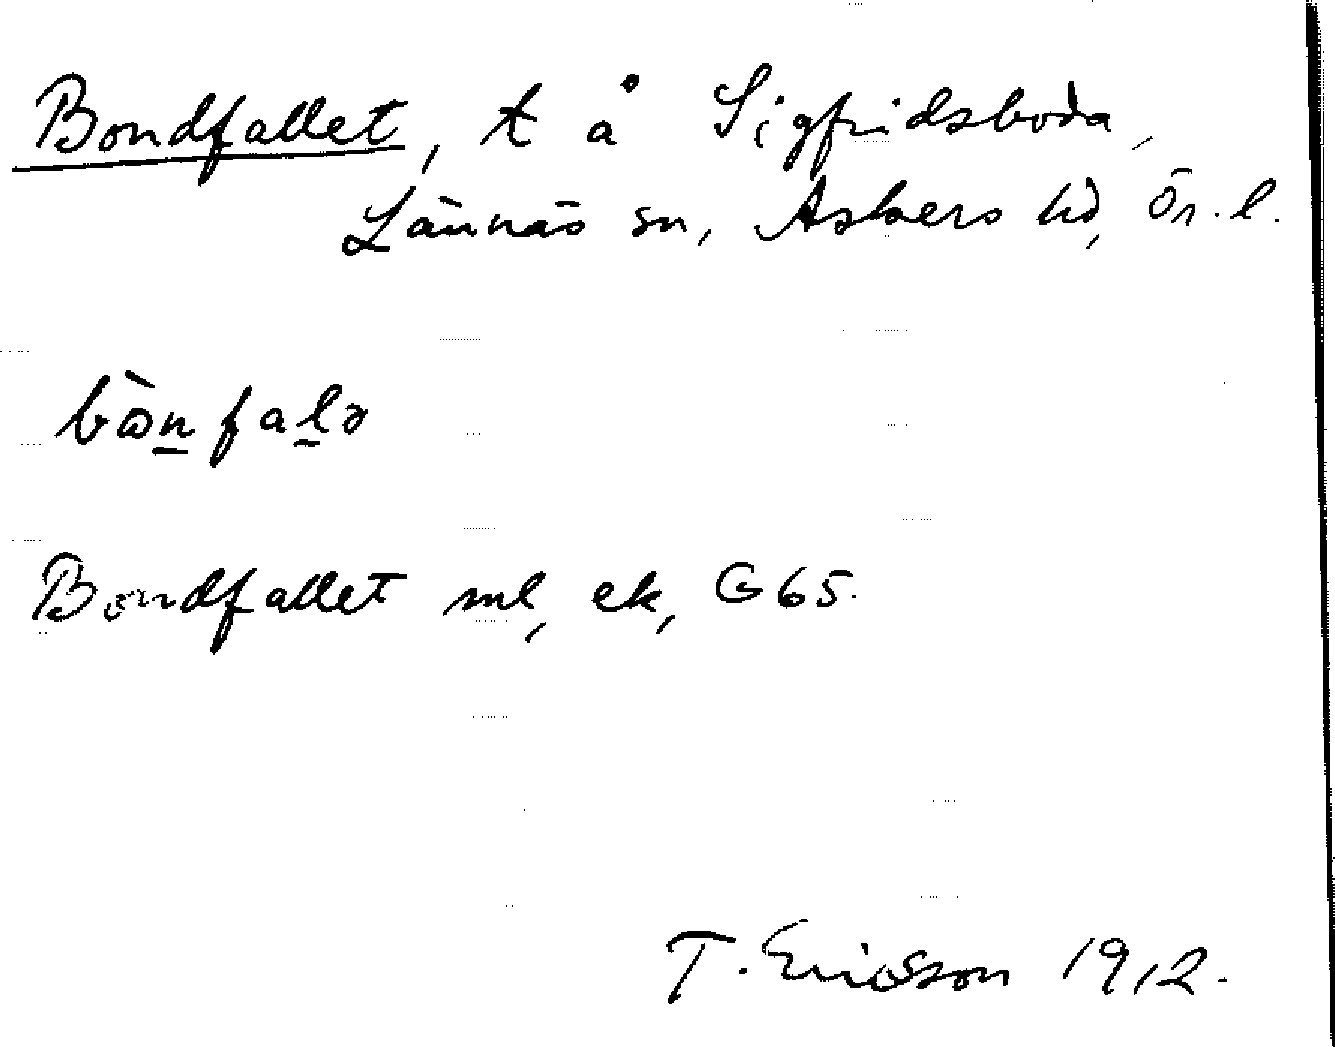 Bondfallet, t å Sigfridsboda,
Lännäs sn, Askers hd, Ör. l.
bɷ̀nfalə
Bondfallet ml, ek, G65.
T. Ericsson 1912.